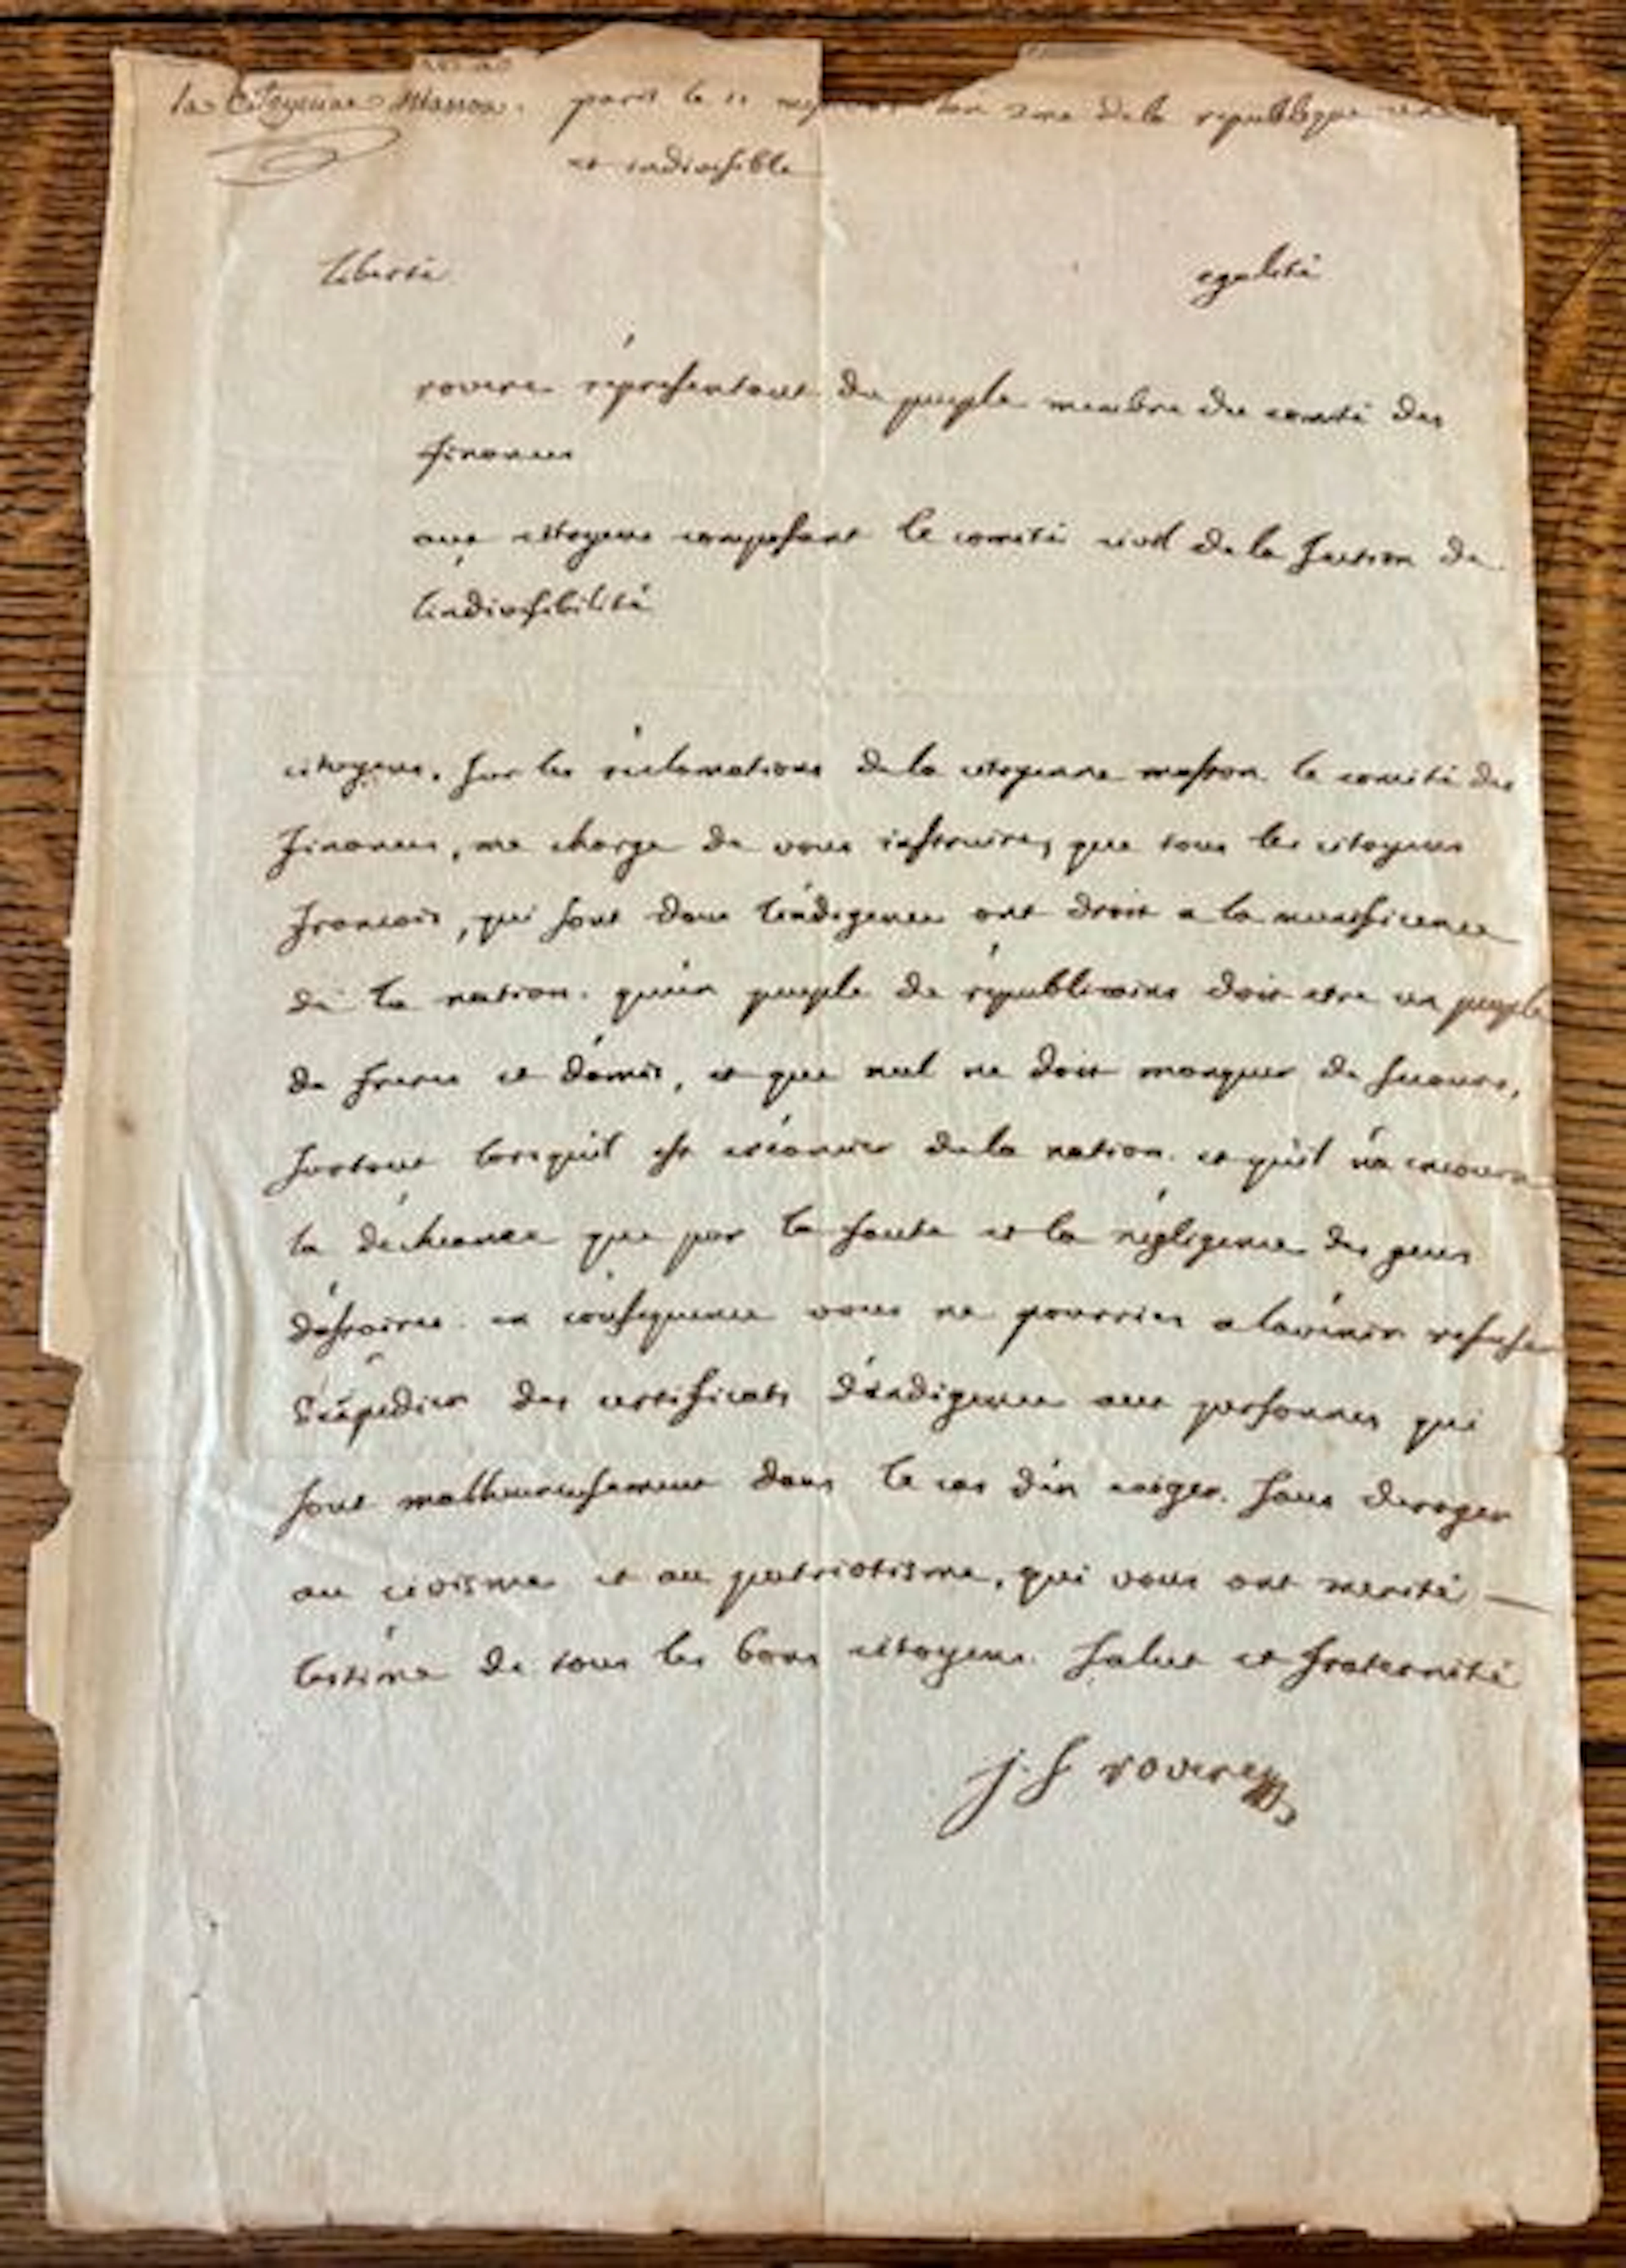 la Citoyenne Masson. paris le 11 lan 2me dela republique
et indivisible
liberté egalité
rovere représentant du peuple membre du comité des
finances
aux citoyens composant le comité civil dela section de
lindivisibilité
citoyens, sur les réclamations dela citoyenne masson le comité des
finances, me charge de vous instruire, que tous les citoyens
francois, qui sont dans lindigence ont droit a la munificence
de la nation. qu'un peuple de républicains doit etre un peuple
de freres et d'amis, et que nul ne doit manquer de secours,
surtout lorsquil est créancier dela nation. et qu'il n'a encouru
la déchéance que par la faute et la négligence des gens
d'afaires. en consequence vous ne pourrier a lavenir refuser
d'expédier des certificats d'indigence aux personnes qui
sont malheureusement dans le cas d'en exiger. sans deroger
au civisme et au patriotisme, qui vous ont merité
lestime de tous les bons citoyens. salut et fraternité
j. f rovere